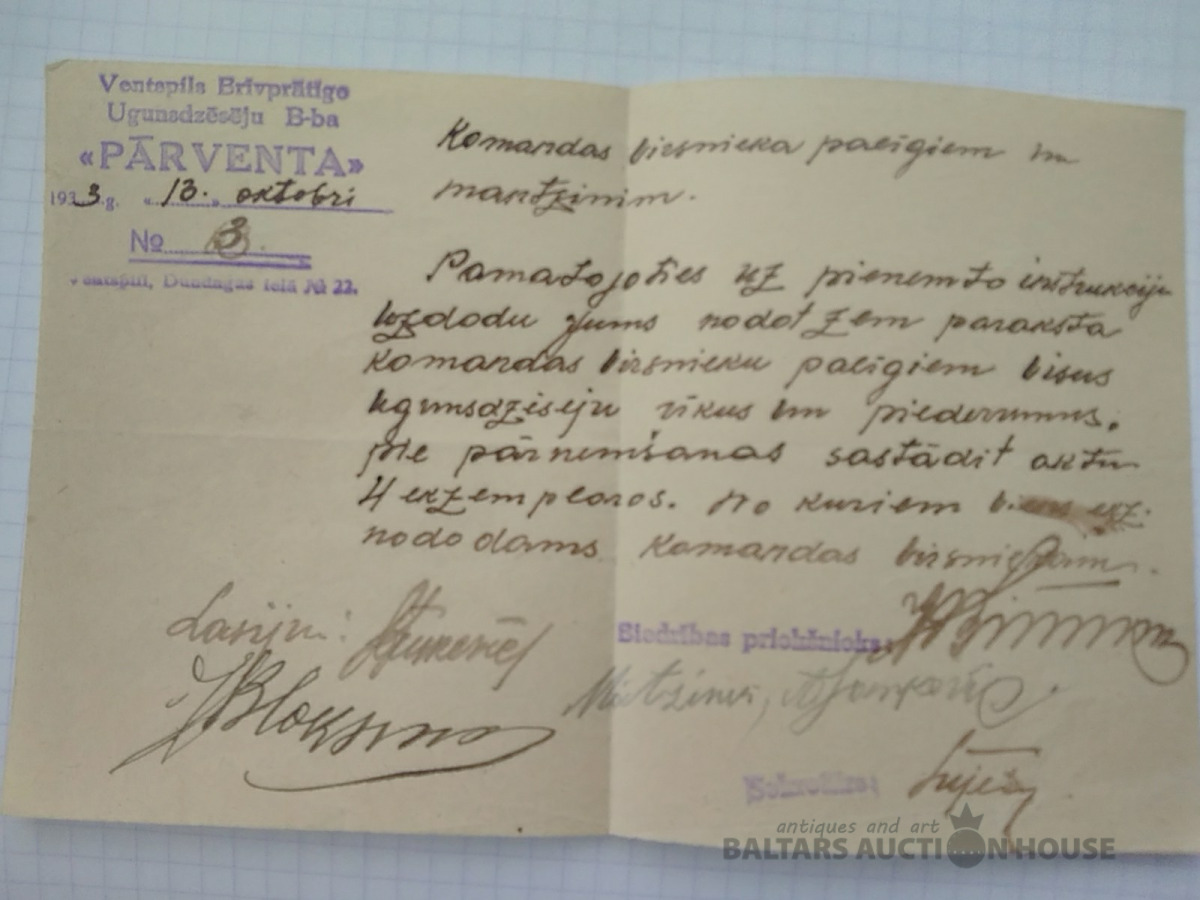 Ventspils Brīvprātīgo
Ugunsdzēsēju B-ba
«PĀRVENTA»
1933.g. „13.„ oktobrī
№ 3.
Ventspilī, Dundagas ielā № 22.
Komandas virsnieka palīgiem un
mantzinim.
Pamatojoties uz pieņemto instrukciju
uzdodu Jums nodot zem paraksta
komandas virsnieku palīgiem visus
ugunsdzēsēju rīkus un piederumus.
pie pārņemšanas sastādīt aktu
4 ekzemplaros. no kuriem viens ekz.
nododams komandas virsniekam.
Lasīju:
Biedrības priekšnieks:
JBloksma
Mantzinis,
Sekretārs:
antiques and art
BALTARS AUCTION HOUSE